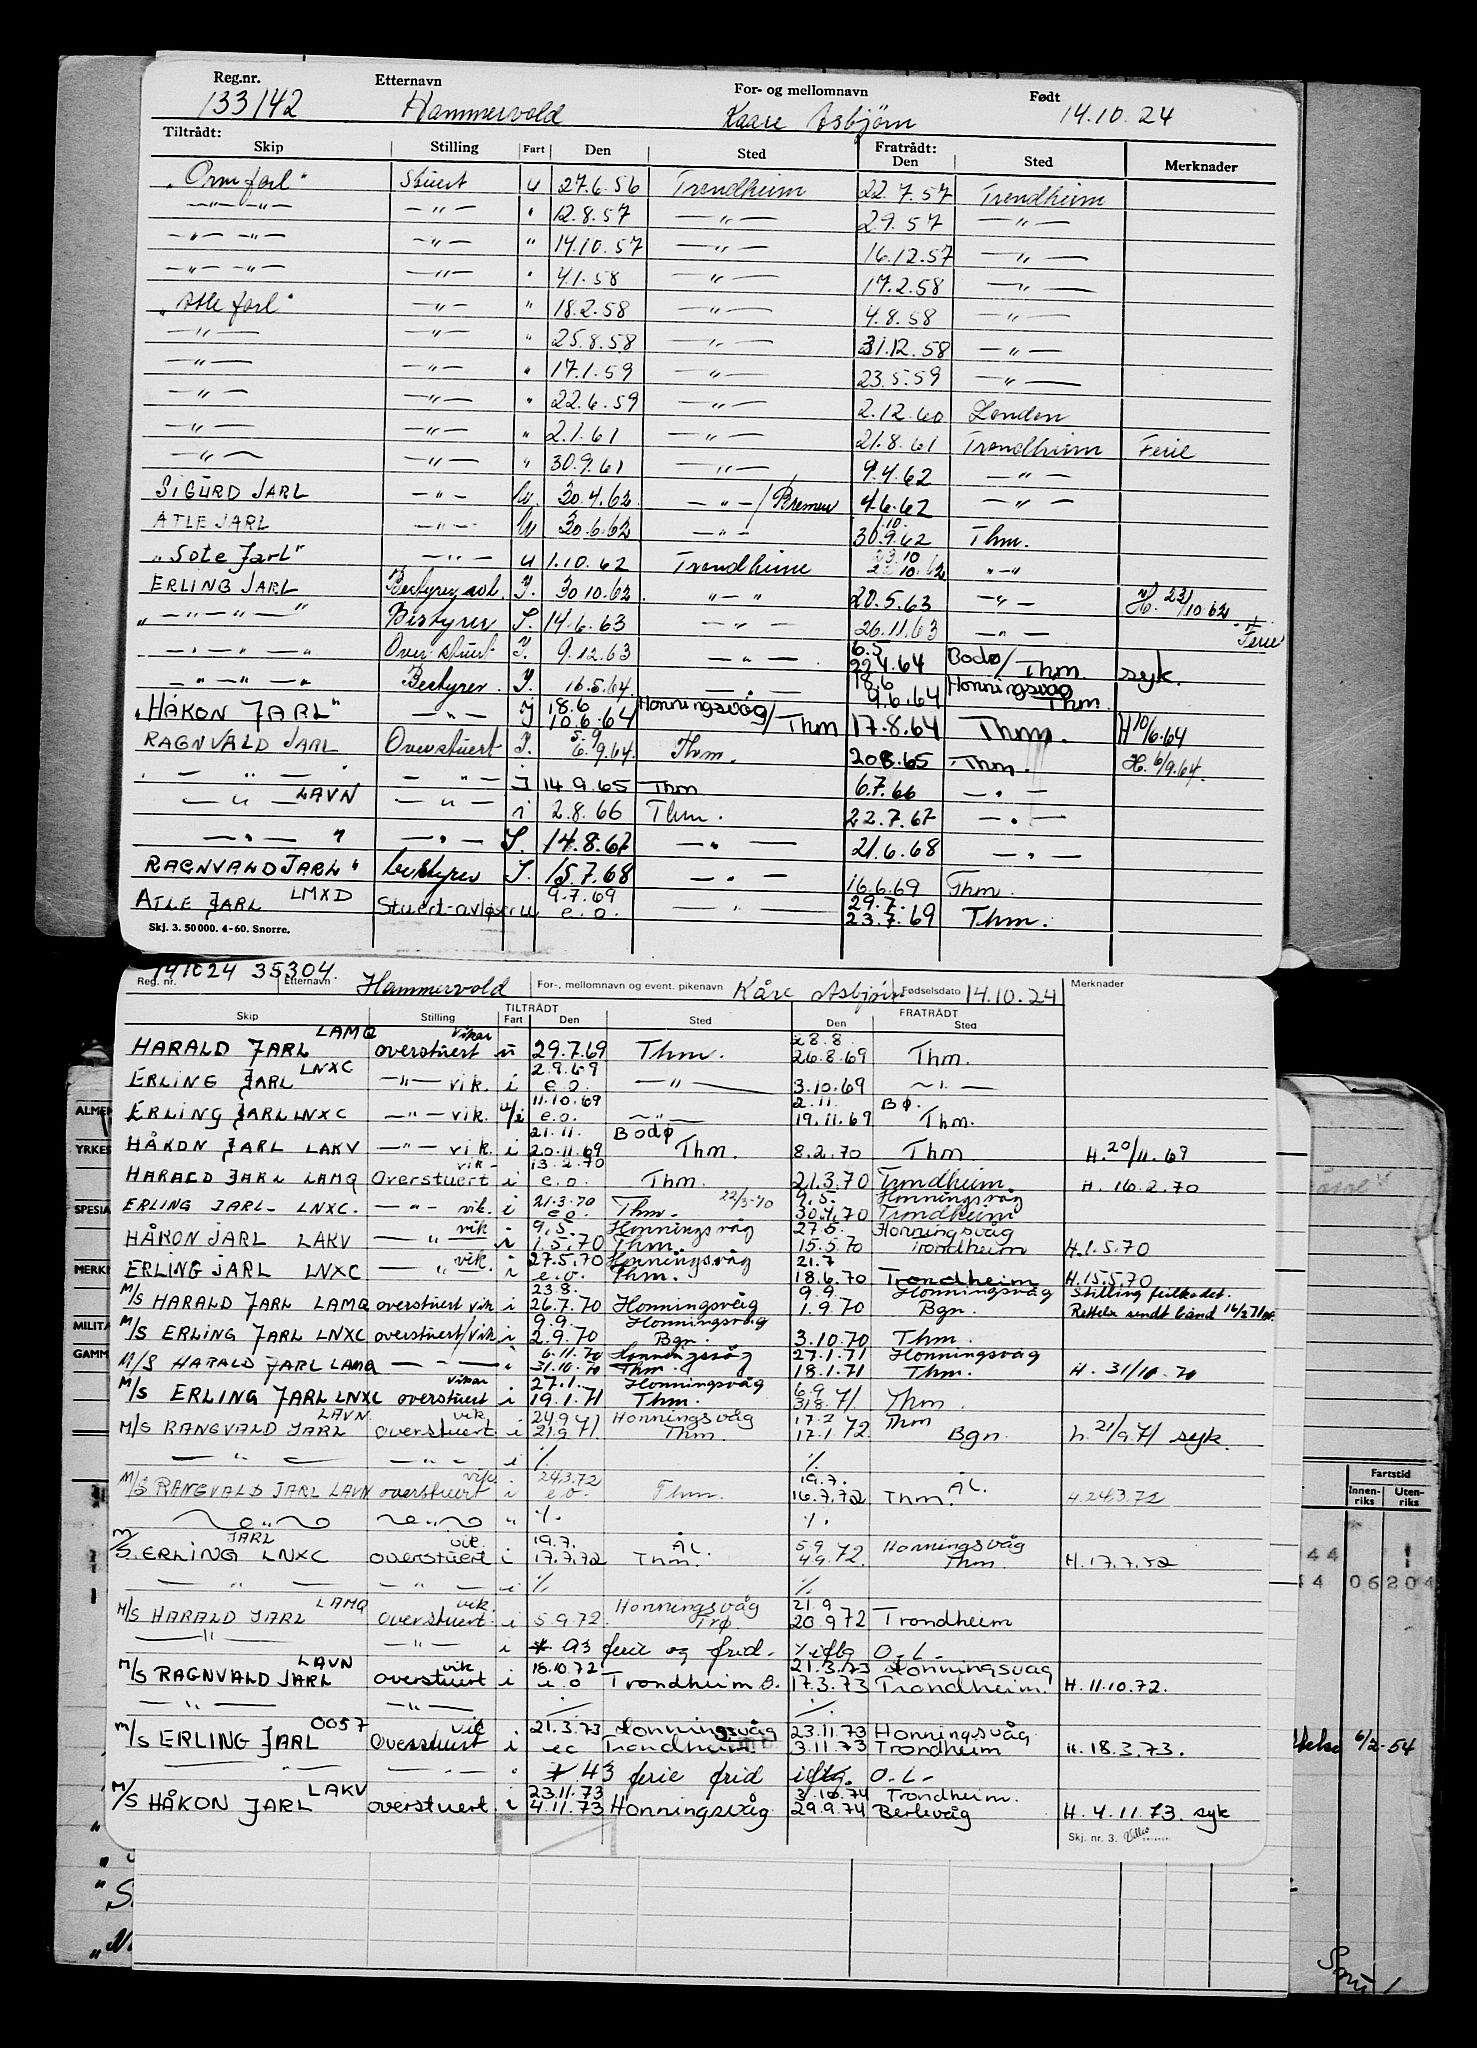 Reg.nr. Etternavn For- og mellomnavn Født
133142 Hammervold Kaare Asbjørn 14.10.24
Tiltrådt: Fratrådt:
Skip Stilling Fart Den Sted Den Sted Merknader
"Orm Jarl" Stuert u 27.6.56 Trondheim 22.7.57 Trondheim
—"— —"— —"— " 12.8.57 —"— 2.9.57 —"—
—"— —"— —"— " 14.10.57 —"— 16.12.57 —"—
—"— —"— —"— " 4.1.58 —"— 17.2.58 —"—
"Atle Jarl" —"— " 18.2.58 —"— 4.8.58 —"—
—"— —"— " 25.8.58 —"— 31.12.58 —"—
—"— —"— " 17.1.59 —"— 23.5.59 —"—
—"— —"— " 22.6.59 —"— 2.12.60 London
—"— —"— " 2.1.61 —"— 21.8.61 Trondheim Ferie
—"— —"— " 30.9.61 —"— 9.4.62 —"—
SIGURD JARL —"— u 30.4.62 —"—/Bremen 4.6.62 —"—
ATLE JARL —"— u 30.6.62 —"— 1.10. 30.9.62 Thm.
"Sote Jarl" —"— u 1.10.62 Trondheim 23.10 10.62 "—"
ERLING JARL Bestyrer avl. I. 30.10.62 —"— 20.5.63 —"— H. 22/10.62
"—"—"—" Bestyrer I. 14.6.63 —"— 26.11.63 —"— Ferie
—"—"—" Over stuert I. 9.12.63 —"— 6.5 22.4.64 Bodø/Thm syk.
—"—"—" Bestyrer I. 16.5.64 —"— 18.6 9.6.64 Honningsvåg Thm.
"HÅKON JARL" —"— I 18.6 10.6.64 Honningsvåg/Thm 17.8.64 Thm. H 10/6.64
RAGNVALD JARL Overstuert I. 5.9 6.9.64. Thm. 20.8.65 Thm. H. 6/9.64.
" — " — " — "— I 14.9.65 Thm 6.7.66 —"—
—"— LAVN —"— i 2.8.66 Thm. 22.7.67 —"—
—"— " —"— I. 14.8.67 —"— 21.6.68 —"—
RAGNVALD JARL" bestyrer I. 15.7.68 —"— 16.6.69 Thm.
ATLE JARL LMXD Stuert-avløser u 9.7.69 e.o. —"— 29.7. 23.7.69 Thm.
Skj. 3. 50000. 4-60. Snorre.
141024 35304.
Reg. nr. Etternavn Hammervold For-, mellomnavn og event. pikenavn Kåre Asbjørn Fødselsdato 14.10.24 Merknader
TILTRÅDT FRATRÅDT
Skip Stilling Fart Den Sted Den Sted
HARALD JARL LAMQ overstuert vikar u 29.7.69 Thm. 28.8. 26.8.69 Thm.
ERLING JARL LNXC —"— vik. i 2.9.69 e.o. —"— 3.10.69 —"—
ERLING JARL LNXC —"— vik. u/i 11.10.69 e.o. —"— 2.11. 19.11.69 BØ. Thm.
HÅKON JARL LAKV —"— vik. i 21.11. 20.11.69 Bodø Thm. 8.2.70 Thm H. 20/11.69
HARALD JARL LAMQ Overstuert vik- i 13.2.70 e.o. Thm. 21.3.70 Trondheim H. 16.2.70
ERLING JARL- LNXC. —"— vik. i 21.3.70 e.o. Thm. 22/3-70 9.5. 30.4.70 Honningsvåg Trondheim
HÅKON JARL LAKV —"— vik i 9.5. 1.5.70 Honningsvåg Thm. 27.5. 15.5.70 Honningsvåg Trondheim H.1.5.70
ERLING JARL LNXC —"— vik. i 27.5.70 e.o. Honningsvåg Thm. 21.7 18.6.70 Trondheim H.15.5.70
M/S HARALD JARL LAMQ overstuert vik i 23.8. 26.7.70 Honningsvåg 9.9. 1.9.70 Honningsvåg Bgn. Stilling feilkodet. Rettelse sendt bånd 16/2 71
M/S ERLING JARL LNXC overstuert/vik i 9.9. 2.9.70 Honningsvåg Bgn. 3.10.70 Thm.
M/S HARALD JARL LAMQ —"— i 6.11.70 31.10.70 Honningsvåg Thm. 27.1.71 18.1.71 Honningsvåg Thm. H. 31/10.70
M/S ERLING JARL LNXC overstuert vikar i 27.1. 19.1.71 Honningsvåg Thm. 6.9 31.8.71. Thm.
M/S RANGVALD JARL LAVN overstuert vik. i 24.9 21.9.71 Honningsvåg Thm. 17.2 17.1.72 Thm Bgn. h. 21/9.71 syk.
—"— —"— i ./. ./.
M/S RANGVALD JARL LAVN overstuert vik. i 24.3.72 e.o. Thm. 19.7. 16.7.72 ÅL. Thm. H.24.3.72
—"— —"— " ./. ./.
M/S. ERLING JARL LNXC overstuert vik. i 19.7. 17.7.72 ÅL. Thm. 5.9 4.9.72 Honningsvåg Thm H.17.7.72
—"— —"— i ./. ./.
M/S HARALD JARL LAMQ overstuert vik. i 5.9.72. Honningsvåg Trø. 21.9 20.9.72 Trondheim
—"— —"— i ./. 93 ferie og frid. iflg O.L.
M/S RAGNVALD JARL LAVN overstuert vik i 18.10.72 e.o Trondheim B. 21.3.73 17.3.73 Honningsvåg Trondheim. H.11.10.72.
—"— —"— ./. ./.
M/S ERLING JARL 0057 Overstuert vik i 21.3.73 eo Honningsvåg Trondheim 23.11.73 3.11.73 Honningsvåg Trondheim H.18.3.73.
—"— ./. 43 ferie frid iflg. O.L.
M/S HÅKON JARL LAKV overstuert. i 23.11.73 4.11.73 Honningsvåg 3.10.74 29.9.74 Trondheim. Berlevåg H.4.11.73. syk
Skj. nr. 3.
ALMEN
YRKES
SPESIA
MERKN
MILITÆ
GAMM
Fartstid
Innen-riks Uten-riks
44
44 06 204
6/2-54